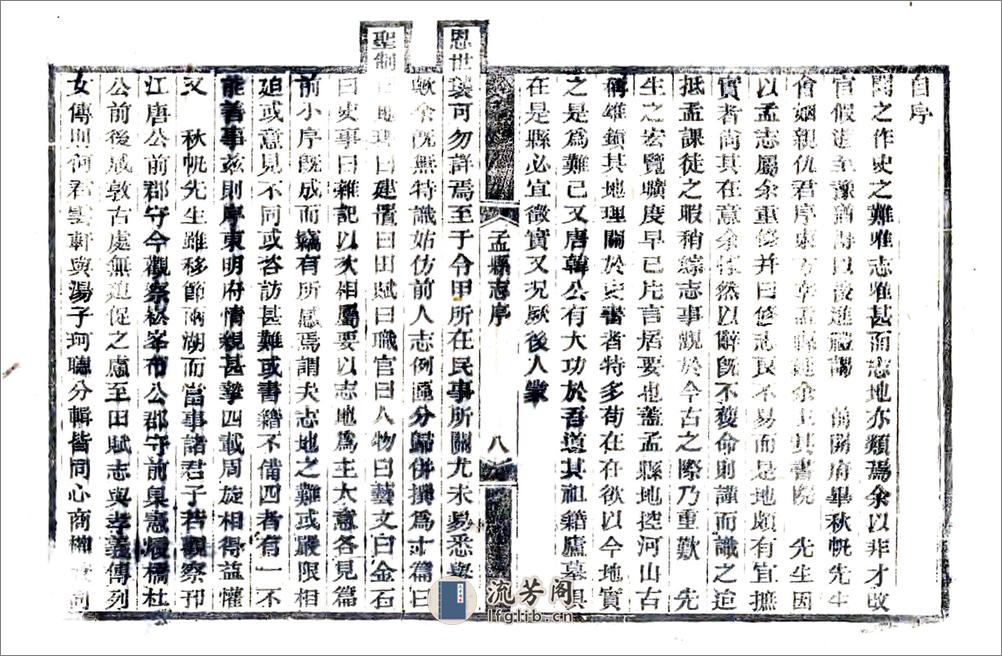 自序
聞之作史之難唯志唯甚而志地亦類焉余以非才改
官假道至豫 前開府畢秋帆先生
會姻親仇君序東方宰孟縣延余主其書院 先生因
以孟志屬余重修并曰修志良不易而是地頗有宜摭
實者尚其在意余 然以辭旣不獲命則謹而識之迨
抵孟課徒之暇稍綜志事觀於今古之際乃重歎 先
生之宏覽曠度早已片言居要也蓋孟縣地控河山古
稱雄鎮其地理關於史書者特多苟在在欲以今地實
之是爲難已又唐韓公有大功於吾道其祖籍廬墓具
在是縣必宜徵實又况厥後人蒙
恩世襲可勿詳焉至于令甲所在民事所關尤未易悉
歟余旣無特識始仿前人志例區分歸併撰爲十篇曰
聖制 地理曰建置曰田賦曰職官曰人物曰藝文曰金石
曰史事曰雜記以次相屬要以志地爲主大意各見篇
前小序旣成而竊有所感焉謂夫志地之難或嚴限相
廹或意見不同或咨訪甚難或書籍不備四者有一不
能善事玆則序東明府情親甚摯四載周旋相得益懽
又 秋帆先生雖移節兩湖而當事諸君子若觀察刊
江唐公前郡守今觀察崧峯布公郡守前臬憲 橋杜
公前後咸敦古處無迫促之慮至田賦志與孝義傳列
女傳則何君雲軒與湯子珂聽分輯皆同心商 詞
孟縣志序
八
流芳阁
lfglib.cn